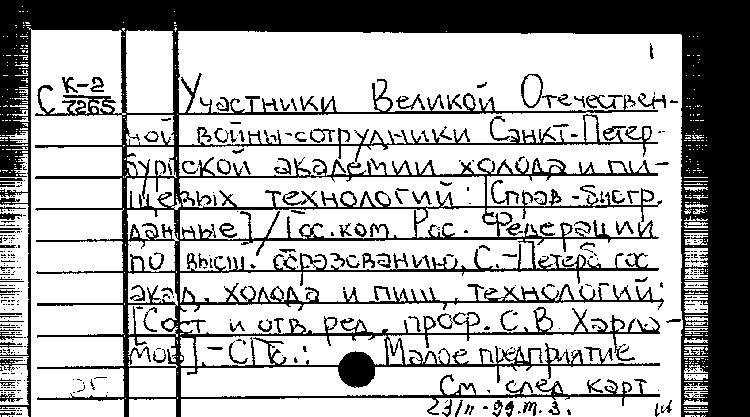 1
С К-2/7265
Участники Великой Отечествен-
ной войны-сотрудники Санкт-Петер-
бургской академии холода и пи-
щевых технологий: [Справ.-биогр.
данные] / Гос. ком. Рос. Федерации
по высш. образованию, С.-Петерб. гос.
акад. холода и пищ. технологий;
[Сост. и отв. ред. проф. С.В. Харла-
мов]. - СПб.:
Малое предприятие
См. след. карт